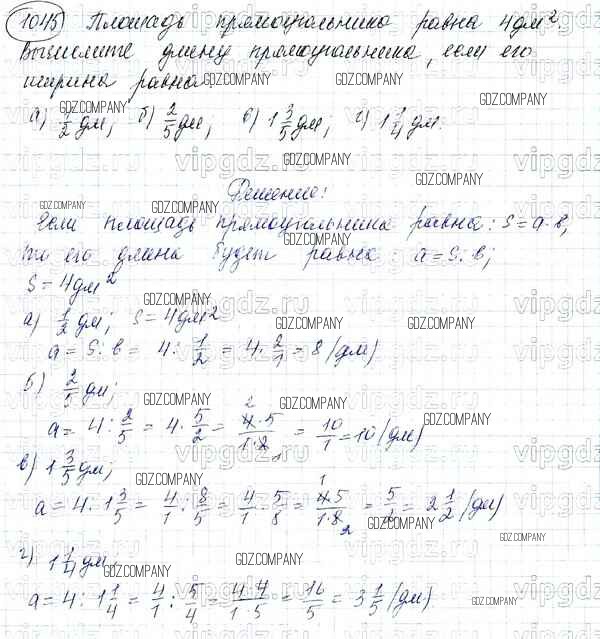 1045 Площадь прямоугольника равна 4 дм².
Вычислите длину прямоугольника, если его
ширина равна
а) 1/2 дм; б) 2/5 дм; в) 1 3/5 дм; г) 1 1/4 дм.
Решение:
Если площадь прямоугольника равна: S = a · b,
то его длина будет равна: a = S : b;
S = 4 дм²
а) 1/2 дм; S = 4 дм²
a = S : b = 4 : 1/2 = 4 · 2/1 = 8 (дм)
б) 2/5 дм;
a = 4 : 2/5 = 4 · 5/2 = 4·5/1·2 = 10/1 = 10 (дм)
в) 1 3/5 дм;
a = 4 : 1 3/5 = 4/1 : 8/5 = 4/1 · 5/8 = 4·5/1·8 = 5/2 = 2 1/2 (дм)
г) 1 1/4 дм
a = 4 : 1 1/4 = 4/1 : 5/4 = 4·4/1·5 = 16/5 = 3 1/5 (дм).
GDZ.COMPANY
vipgdz.ru